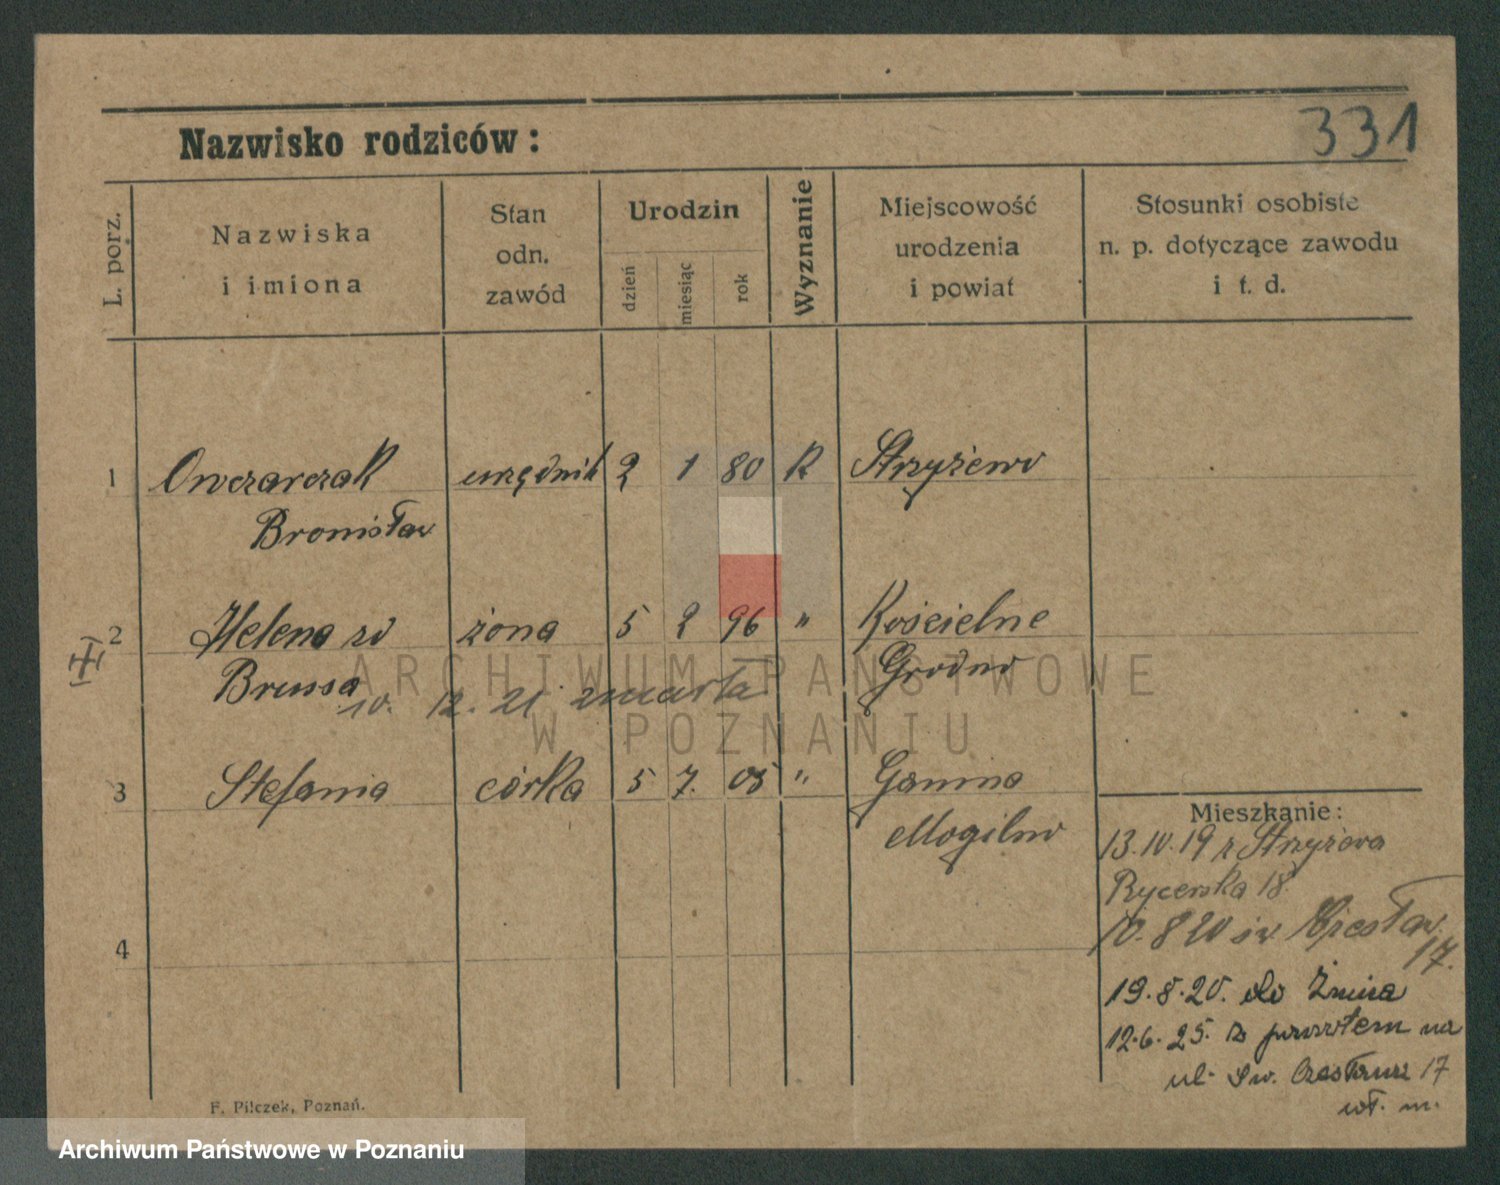 331
Nazwisko rodziców:
L. porz.
Nazwiska
i imiona
Stan
odn.
zawód
Urodzin
dzień
miesiąc
rok
Wyznanie
Miejscowość
urodzenia
i powiat
Stosunki osobiste
n. p. dotyczące zawodu
i t. d.
1 Owczarczak urzędnik 2 1 80 K Strzyżewo
Bronisław
2 Helena żona 5 2 96 " Kościelne
Grodno
10. 12. 21 zmarła
3 Stefania córka 5 7. 05 "
Mogilno
4
Mieszkanie:
13.10.19 z Strzyżewa
Rycerska 18
10.8 20 św
17.
19.8.20. do Żnina
12.6.25. z powrotem na
ul. Św. Czesława 17
wł. m.
F. Pilczek, Poznań.
ARCHIWUM PAŃSTWOWE
W POZNANIU
Archiwum Państwowe w Poznaniu